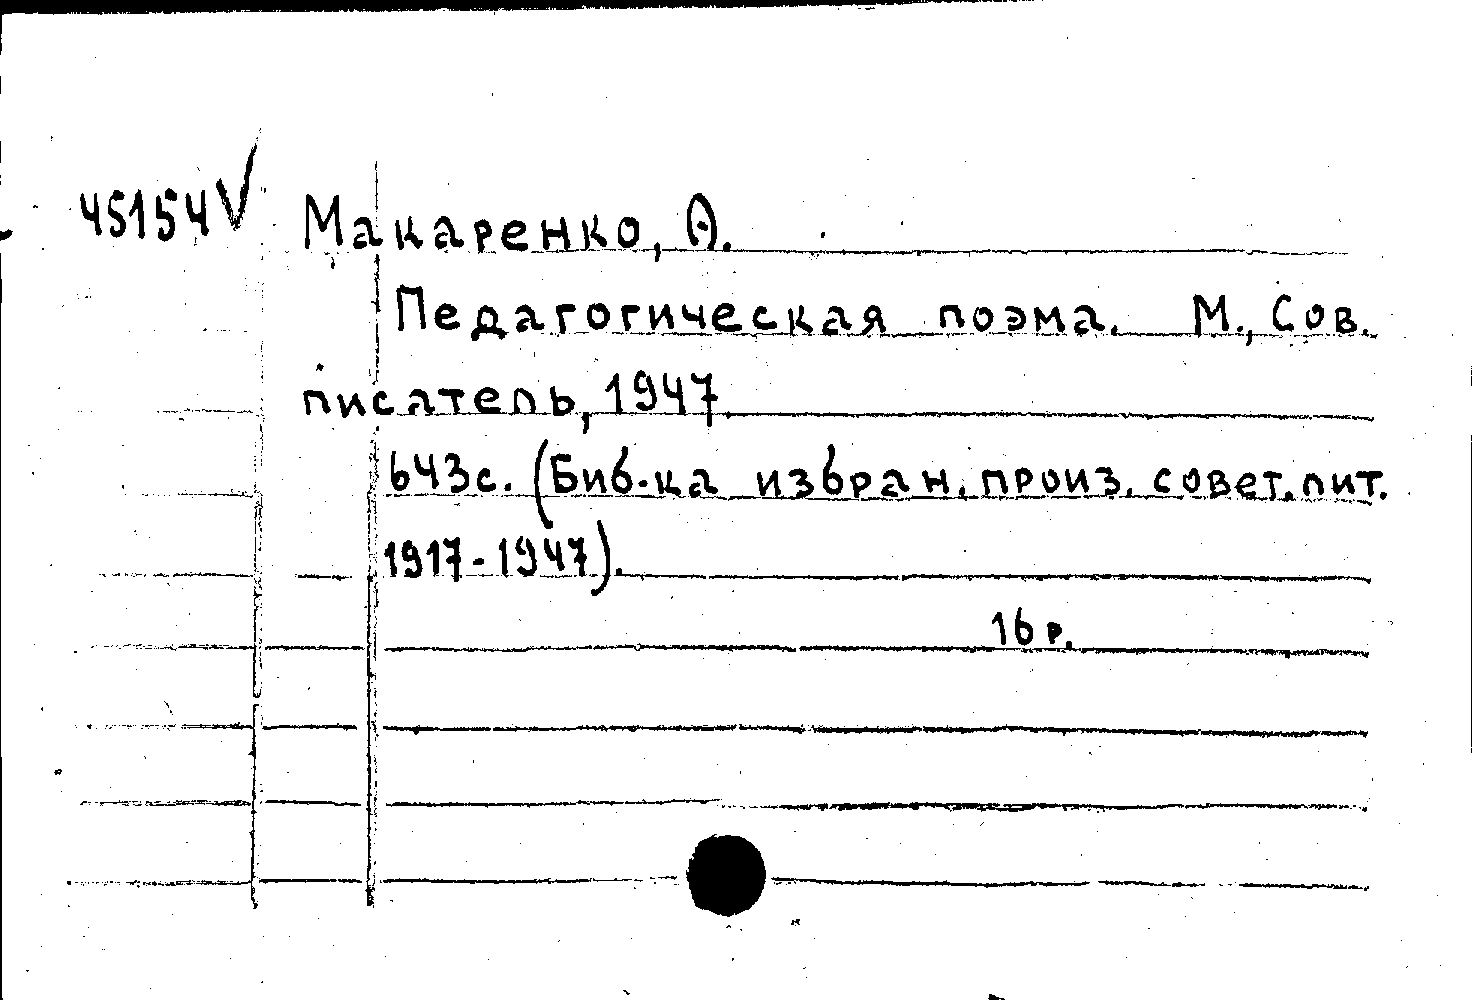 45154 V Макаренко, А.
Педагогическая поэма. М., Сов.
писатель, 1947
643с. (Биб-ка избран. произ. совет. лит.
1917-1947).
16 р.